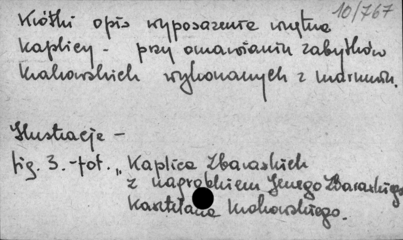 10/767
Krótki opis wyposażenia wnętrza
Kaplicy - przy omawianiu zabytków
krakowskich wykonanych z marmuru.
Ilustracje -
fig. 3. - fot. „Kaplica Zbaraskich
z nagrobkiem Jerzego Zbaraskiego
Kasztelana krakowskiego.